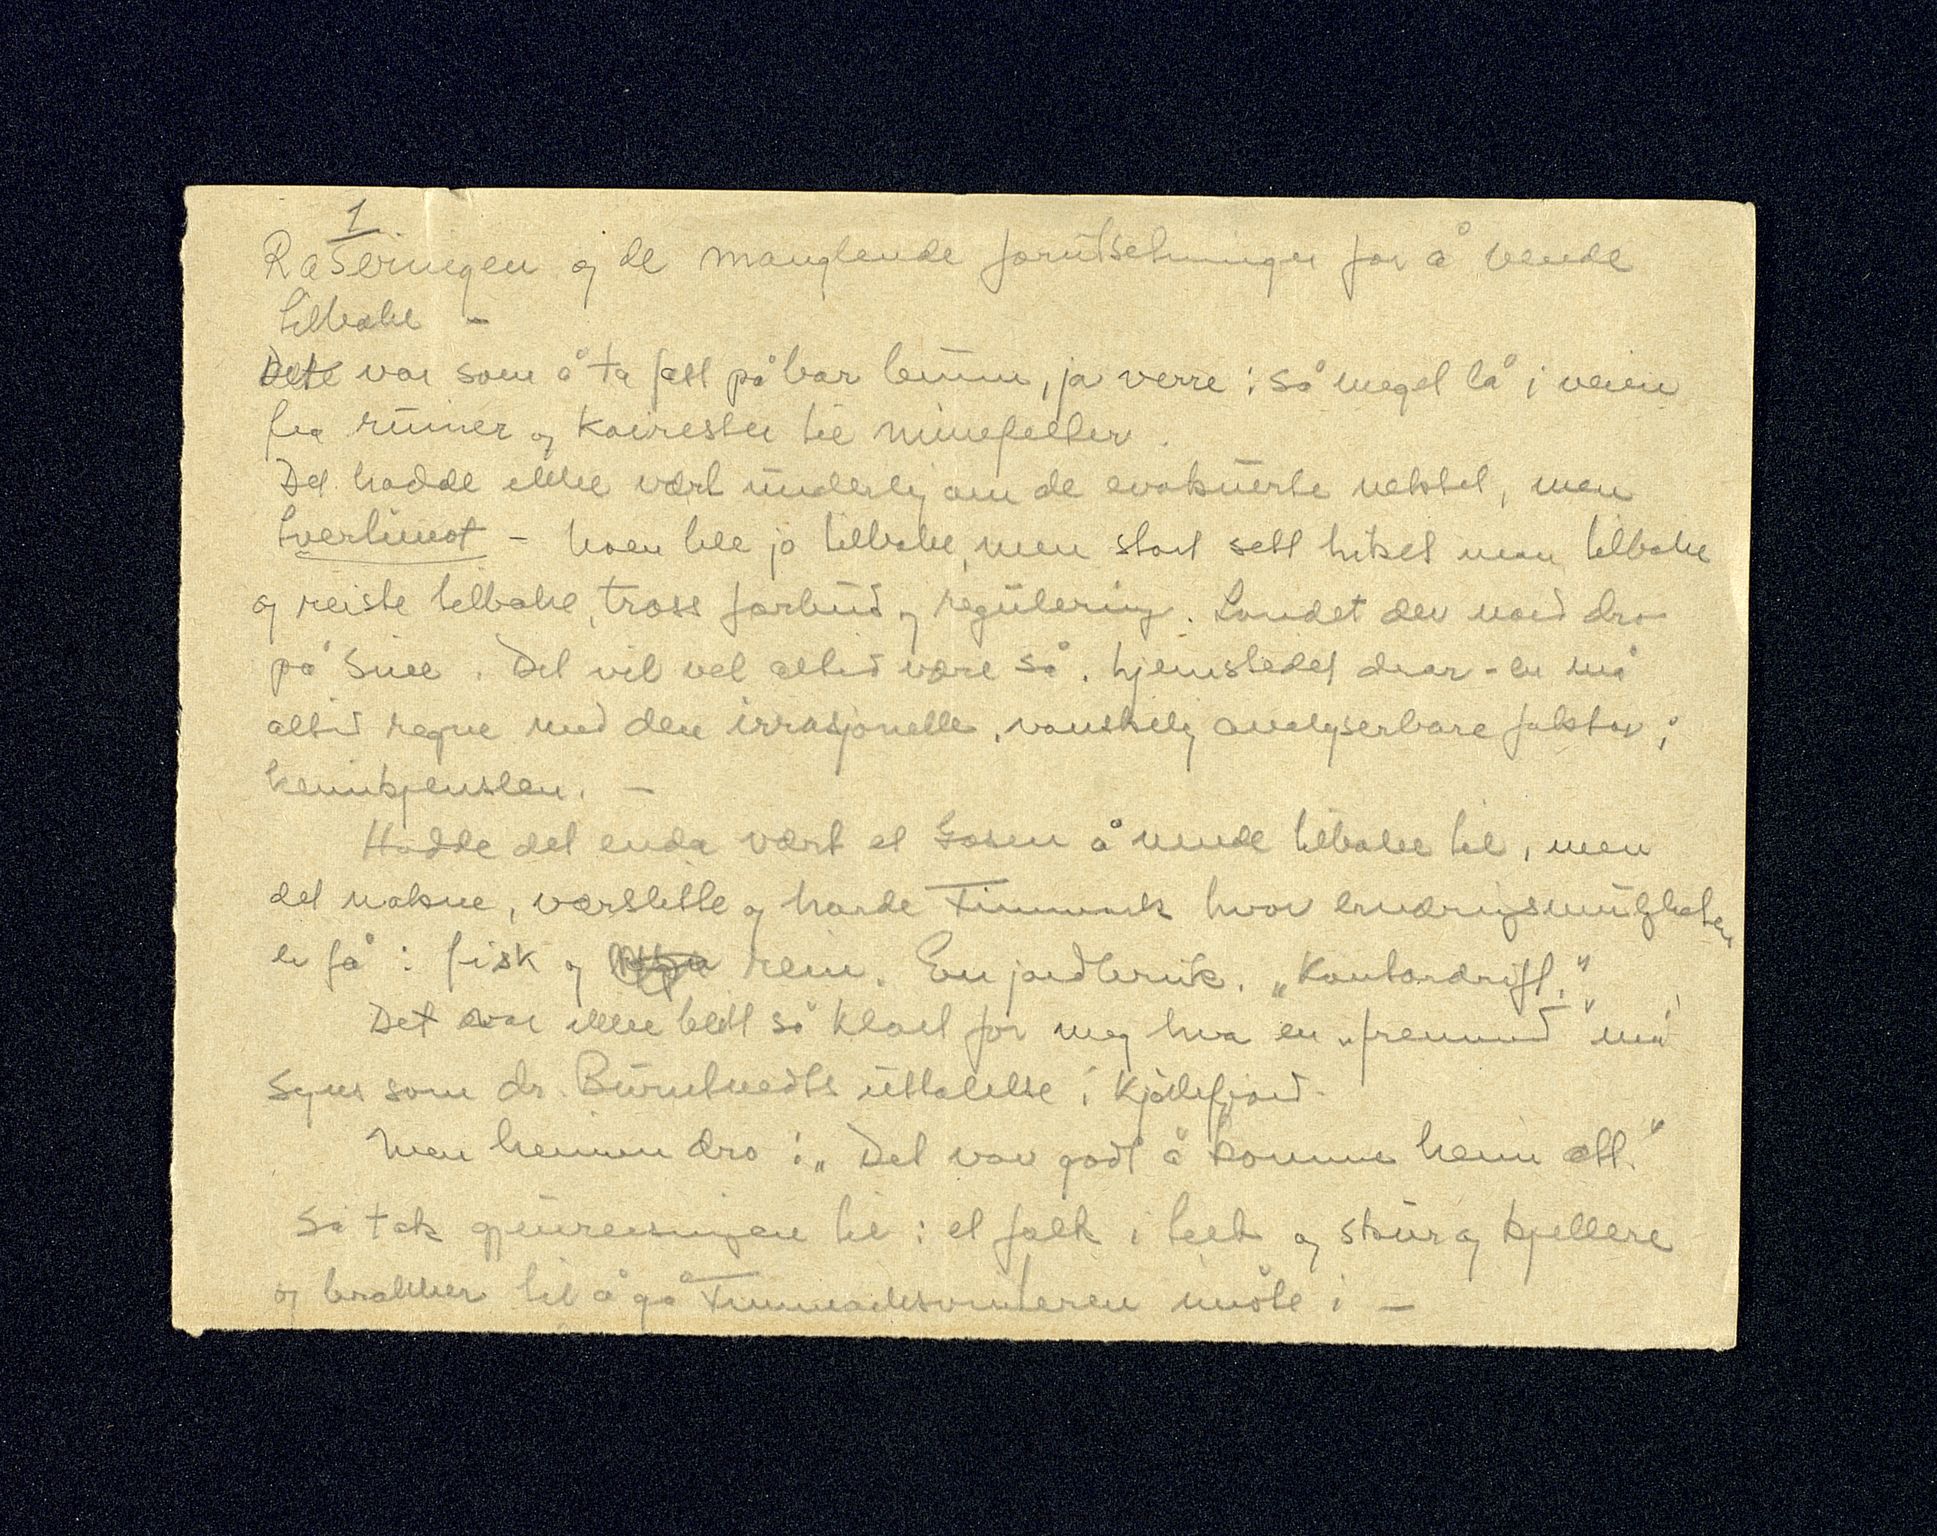 1.
Raseringen og de manglende forutsetninger for å vende
tilbake –
Dete var som å ta fatt på bar bunn, ja verre: så meget lå i veien
fra ruiner og kairester til minefelter.
Det hadde ikke vært underlig om de evakuerte nektet, men
tvertimot – noen ble jo tilbake, men stort sett higet man tilbake
og reiste tilbake, tross forbud og regulering. Landet der nord dro
på sine. Det vil vel altid være så, hjemstedet drar – en må
altid regne med den irrasjonelle, vanskelig analyserbare faktor,
heimkjenslen. –
Hadde det enda vært et Gosen å vende tilbake til, men
det nakne, værslitte og harde Finnmark hvor ernæringsmulighetene
er få: fisk og rein. En jordbruk. „Kontordrift."
Det var ikke blitt så klart for meg hva en „fremmed" må
synes som dr. uttalelse i Kjøllefjord.
Men heimen dro: „Det var godt å komme heim att."
Så tok gjenreisningen til: et folk i telt og skur og kjellere
og brakker til å gå Finnmarksvinteren imøte i –